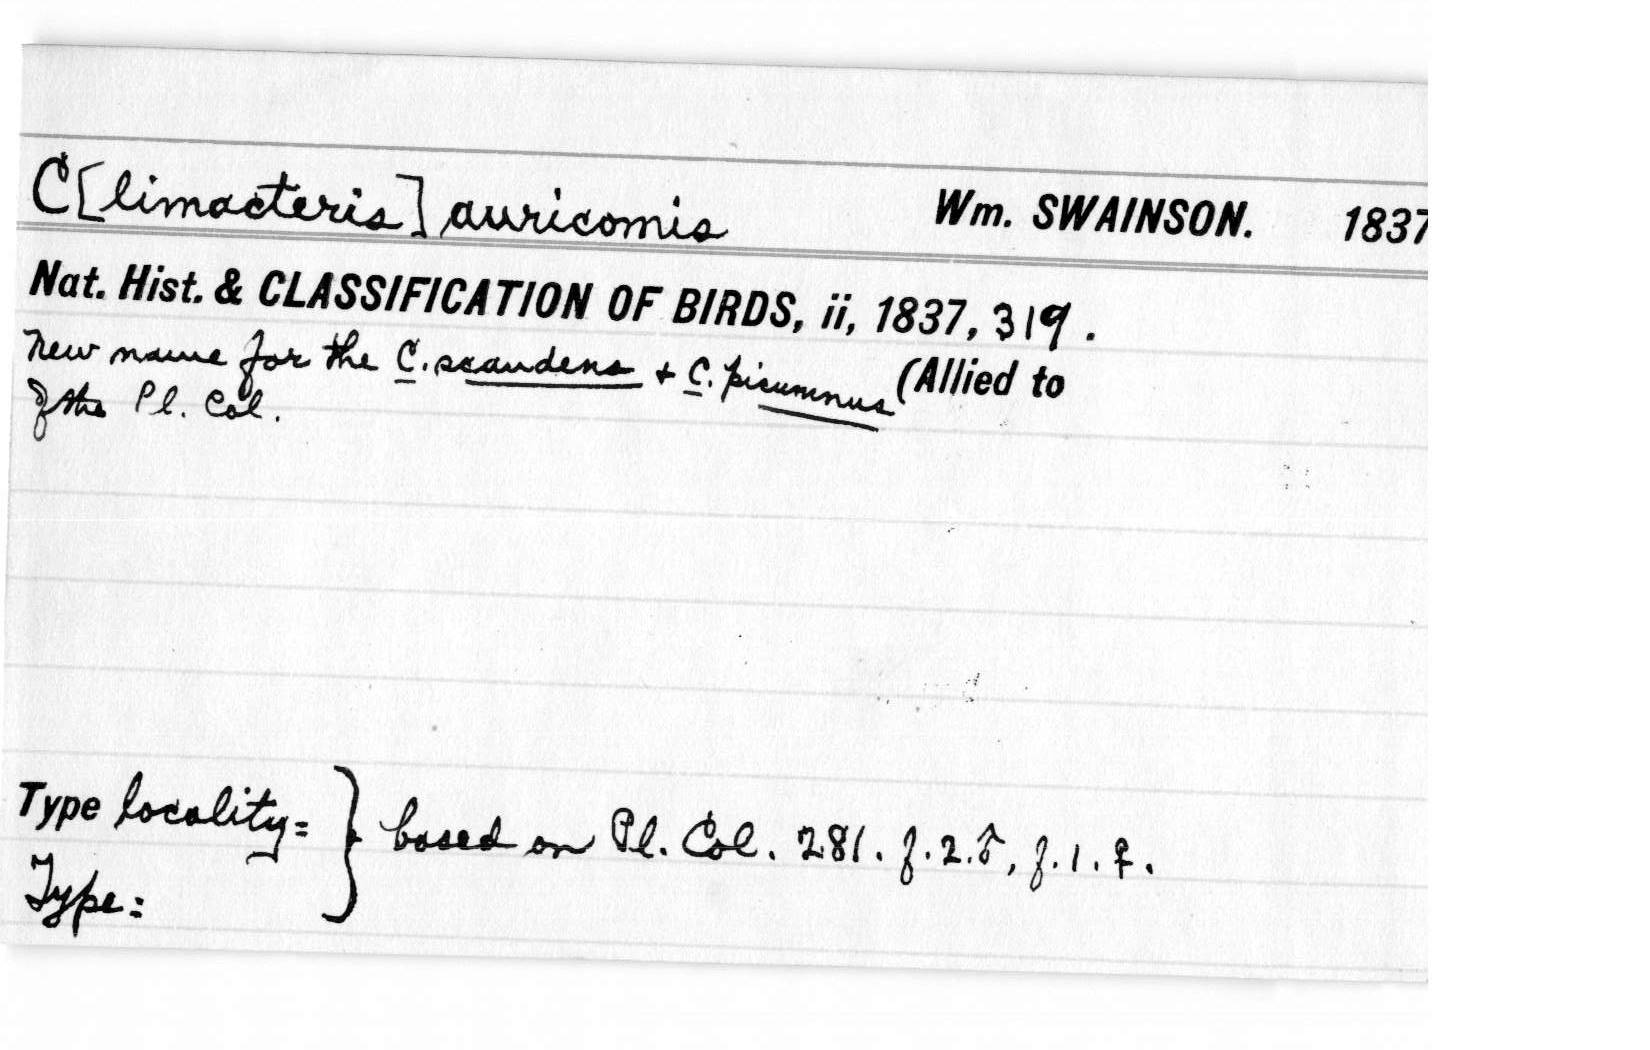 C[limacteris] auricomis Wm. SWAINSON. 1837
Nat. Hist. & CLASSIFICATION OF BIRDS, ii, 1837, 319.
New name for the C. scandens + C. picumnus (Allied to
of the Pl. Col.
Type locality =
Type: } based on Pl. Col. 281. f.2.♂, f.1.♀.